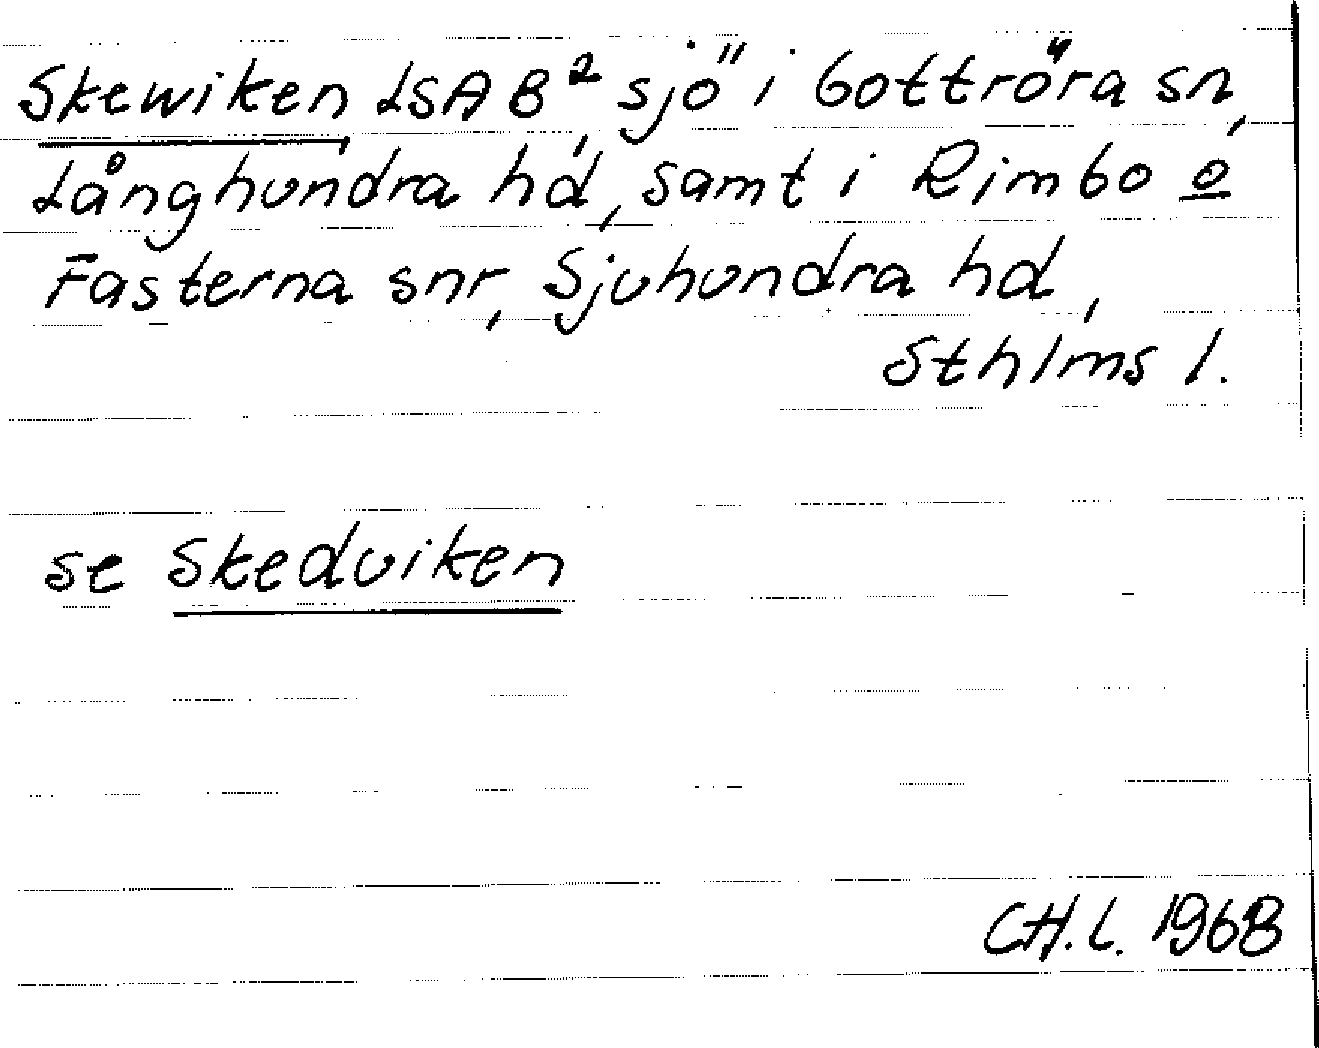 Skewiken, LSA B², sjö i Gottröra sn,
Långhundra hd, samt i Rimbo o
Fasterna snr, Sjuhundra hd,
Sthlms l.
se Skedviken
CH.L. 1968